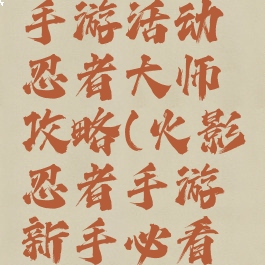 手游活动
忍者大师
攻略(火影
忍者手游
新手必看